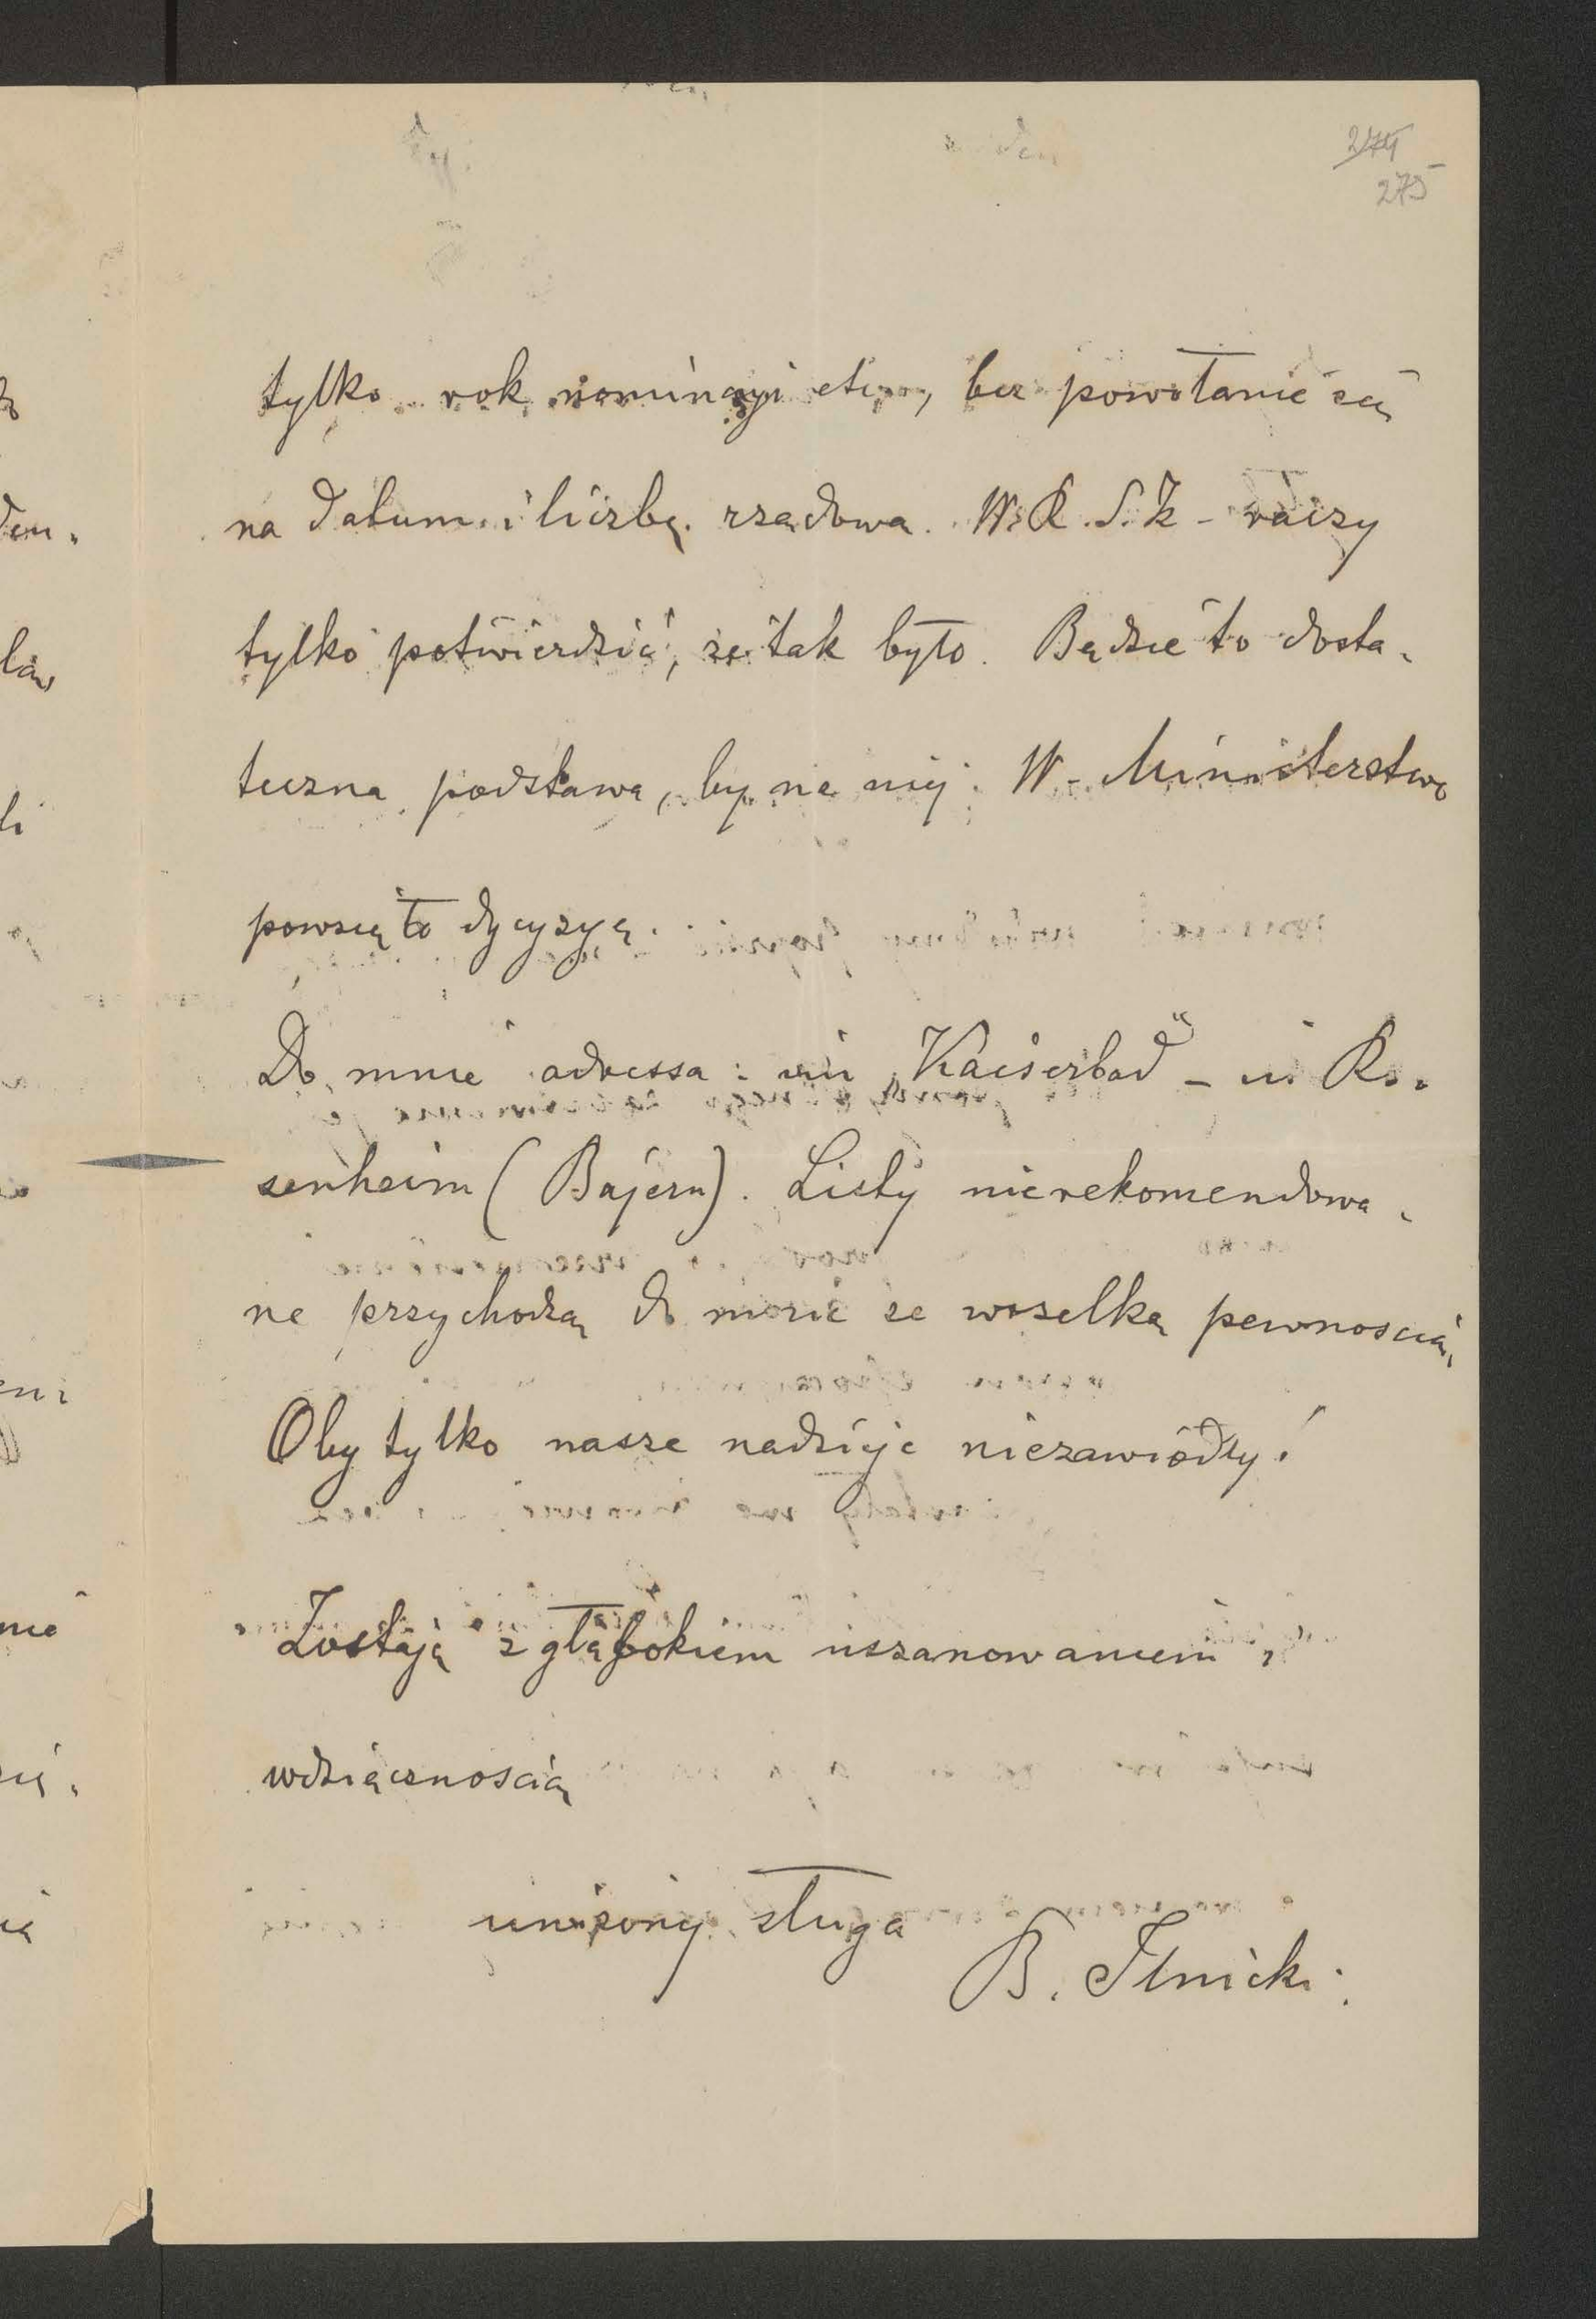 274
275
tylko rok nominacyi etc, bez powołanie się
na datum i liczbę rządowa. W. R. S. K - raczy
tylko potwierdzić, że tak było. Będzie to dosta-
teczna podstawa, by na niej W- Ministerstwo
powzięło dycyzyę.
Do mnie adressa: "Kaiserbad" - in Ro-
senheim (Bajern). Listy nierekomendowa-
ne przychodzą do mnie ze wszelką pewnoscią,
Oby tylko nasze nadzieje niezawiódły!
Zostaję z głębokiem uszanowaniem i
wdzięcznoscią
uniżony sługa
B. Ilnicki